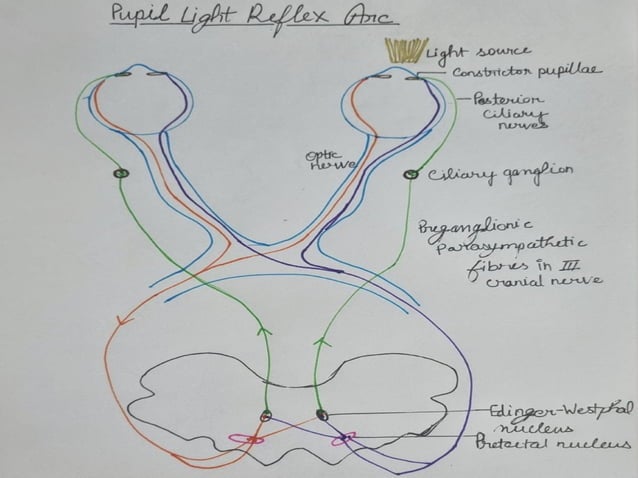 Pupil Light Reflex Arc
Light source
Constrictor pupillae
Posterior
ciliary
nerves
Optic
nerve
Ciliary ganglion
Preganglionic
parasympathetic
fibres in III
cranial nerve
Edinger-Westphal
nucleus
Pretectal nucleus